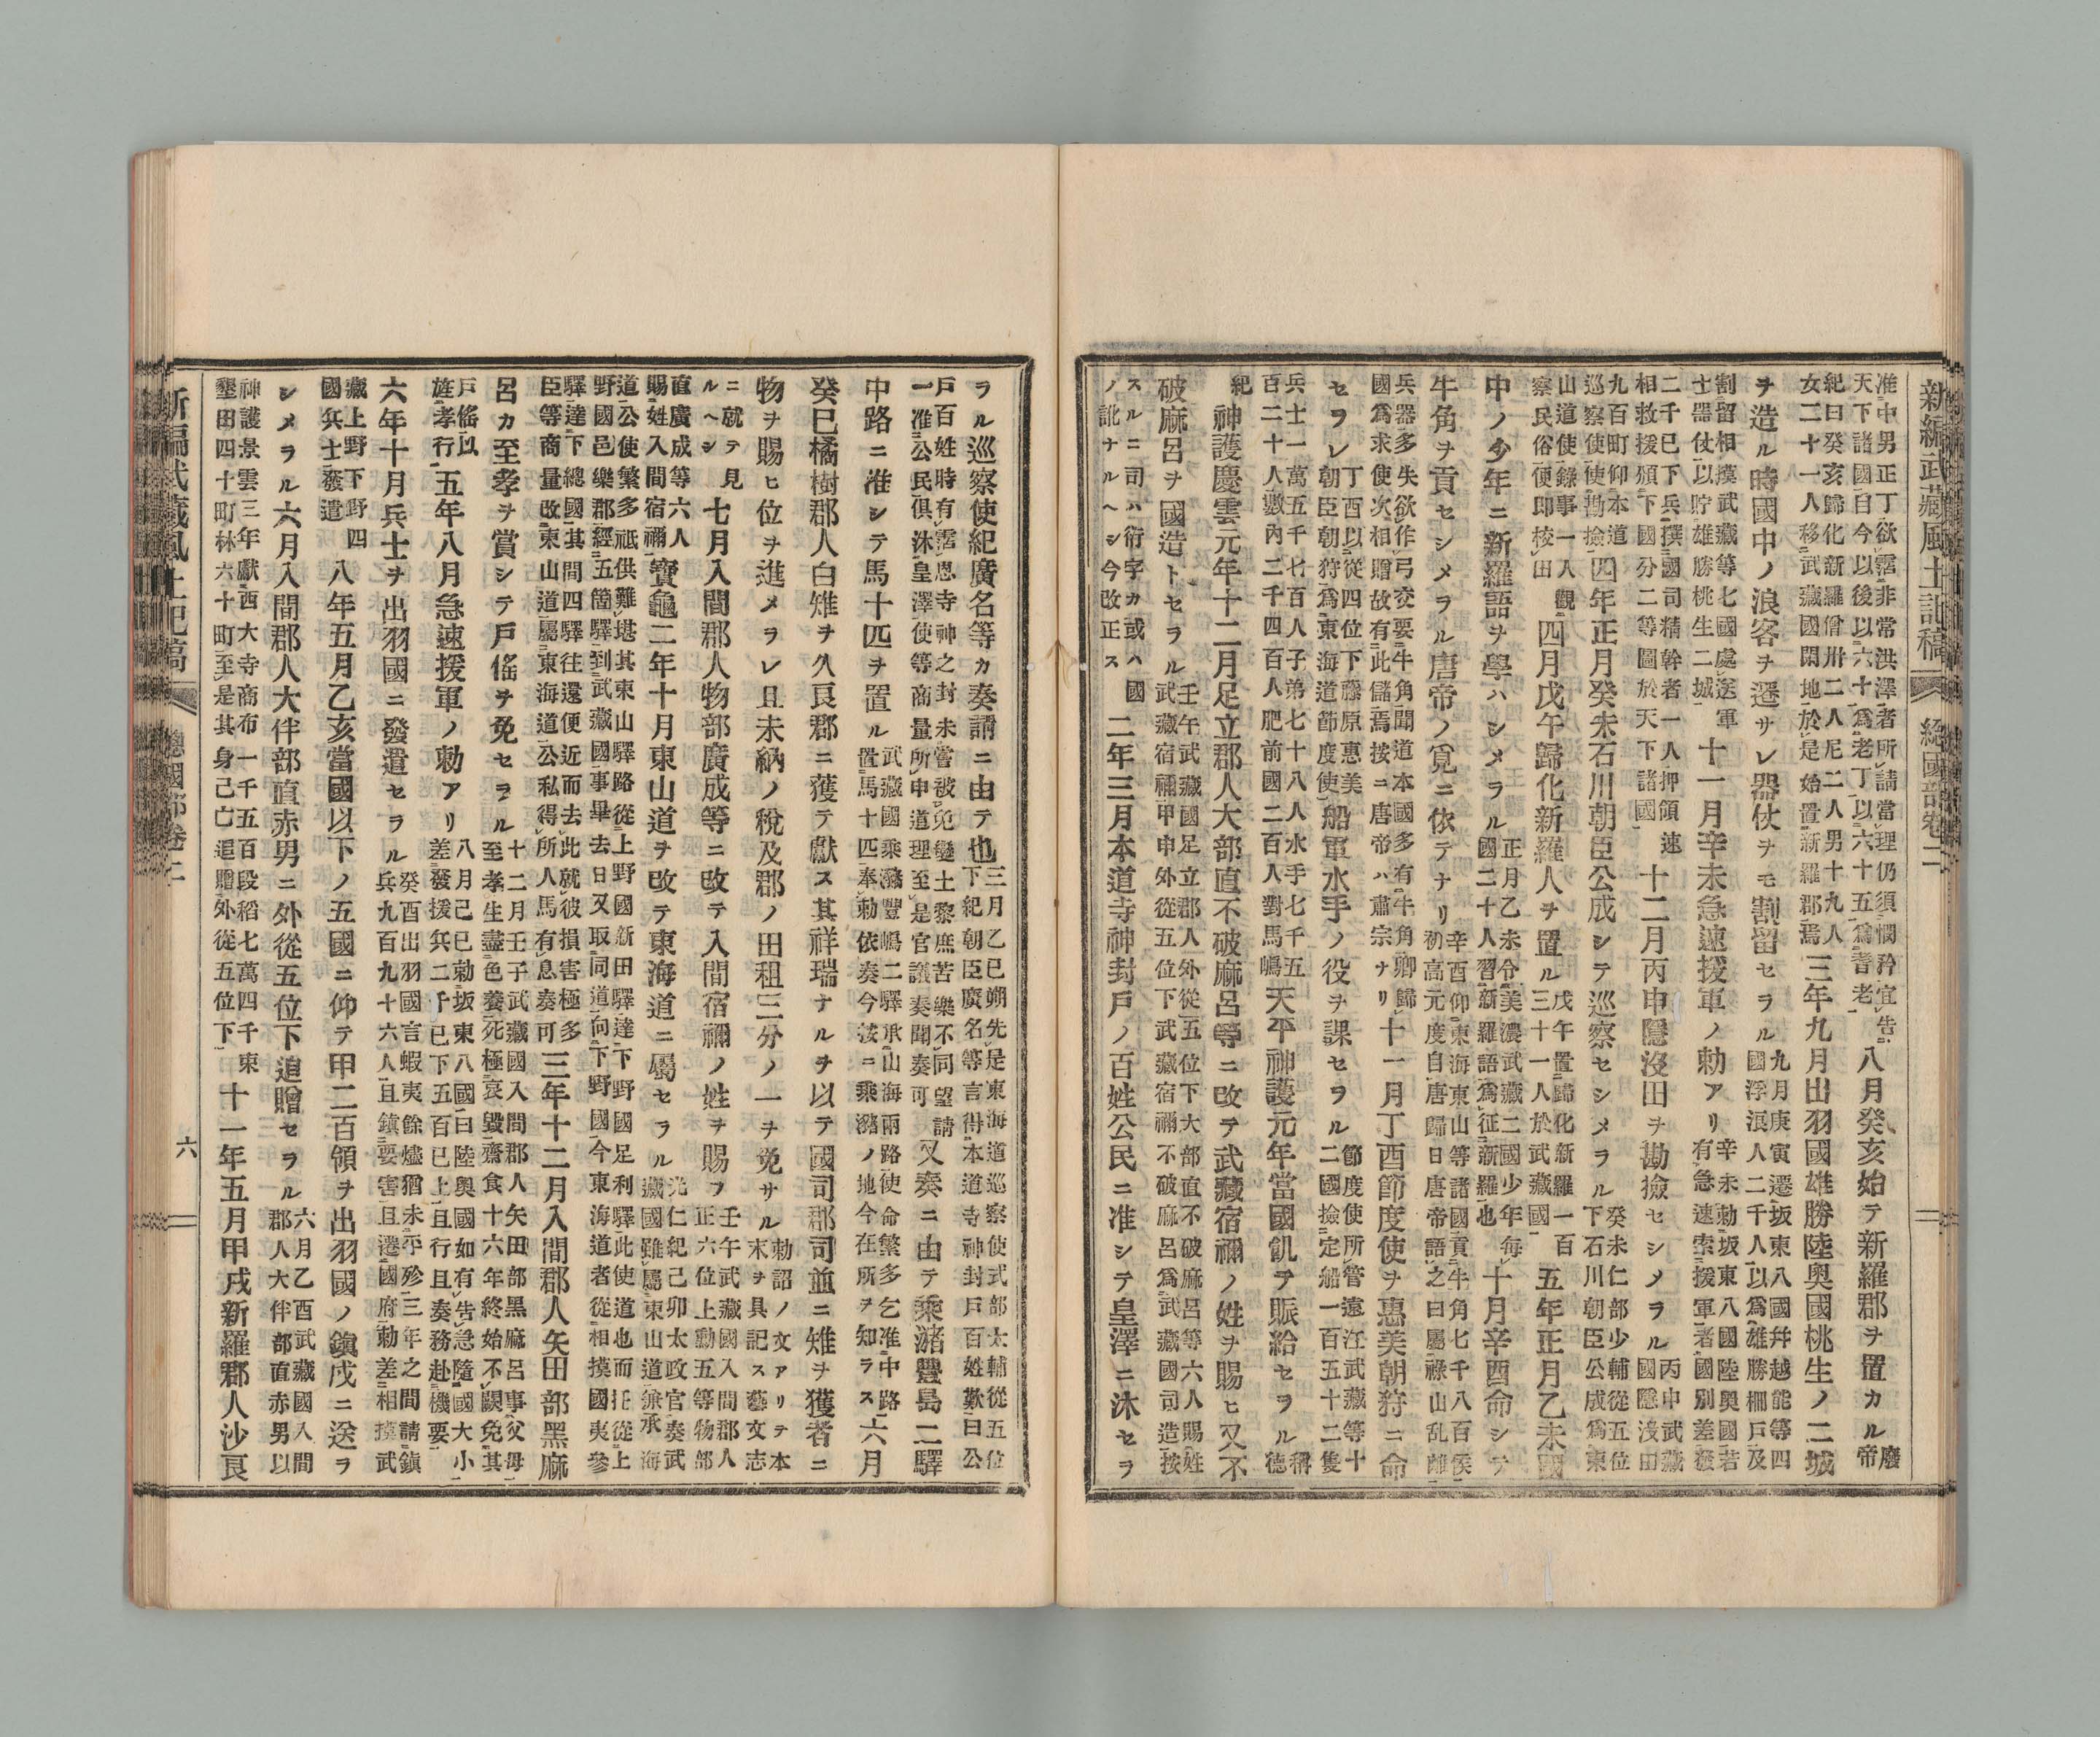 新編武藏風土記稿 總國部卷二
准中男正丁欲霑非常洪澤者所請當理仍須憫矜宜告
天下諸國自今以後以六十爲老丁以六十五爲耆老
八月癸亥始テ新羅郡ヲ置カル
廢帝
紀曰癸亥歸化新羅僧卅二人尼二人男十九人
女二十一人移武藏國閑地於是始置新羅郡焉
三年九月出羽國雄勝陸奧國桃生ノ二城
ヲ造ル時國中ノ浪客ヲ遷サレ器仗ヲモ割留セラル
九月庚寅遷坂東八國幷越能等四
國浮浪人二千人以爲雄勝柵戸及
割留相摸武藏等七國處送軍
士器仗以貯雄勝桃生二城
十一月辛未急速援軍ノ勅アリ
辛未勅坂東八國陸奧國若
有急速索援軍者國別差發
二千已下兵撰國司精幹者一人押領速
相救援頒下國分二等圖於天下諸國
十二月丙申隱沒田ヲ勘撿セシメラル
丙申武藏
國隱沒田
九百町仰本道
巡察使使勘撿
四年正月癸未石川朝臣公成シテ巡察セシメラル
癸未仁部少輔從五位
下石川朝臣公成爲東
山道使錄事一人觀
察民俗便即校田
四月戊午歸化新羅人ヲ置ル
戊午置歸化新羅一百
三十一人於武藏國
五年正月乙未國
中ノ少年ニ新羅語ヲ學ハシメラル
正月乙未令美濃武藏二國少年每
國二十人習新羅語爲征新羅也
十月辛酉命シテ
牛角ヲ貢セシメラル唐帝ノ覓ニ依テナリ
辛酉仰東海東山等諸國貢牛角七千八百隻
初高元度自唐歸日唐帝語之曰屬祿山乱離
兵器多失欲作弓交要牛角聞道本國多有牛角卿歸
國爲求使次相贈故有此儲焉按ニ唐帝ハ肅宗ナリ
十一月丁酉節度使ヲ惠美朝狩ニ命
セラレ
丁酉以從四位下藤原惠美
朝臣朝狩爲東海道節度使
船軍水手ノ役ヲ課セラル
節度使所管遠江武藏等十
二國撿定船一百五十二隻
兵士一萬五千七百人子弟七十八人水手七千五
百二十人數內二千四百人肥前國二百人對馬嶋
天平神護元年當國飢ヲ賑給セラル
稱德
紀
神護慶雲元年十二月足立郡人大部直不破麻呂等ニ改テ武藏宿禰ノ姓ヲ賜ヒ又不
破麻呂ヲ國造トセラル
壬午武藏國足立郡人外從五位下大部直不破麻呂等六人賜姓
武藏宿禰甲申外從五位下武藏宿禰不破麻呂爲武藏國司造按
スルニ司ハ衍字カ或ハ國
ノ訛ナルヘシ今改正ス
二年三月本道寺神封戸ノ百姓公民ニ准シテ皇澤ニ沐セラ
ラル巡察使紀廣名等カ奏請ニ由テ也
三月乙巳朔先是東海道巡察使式部大輔從五位
下紀朝臣廣名等言得本道寺神封戸百姓歎曰公
戸百姓時有霑恩寺神之封未嘗被免率土黎庶苦樂不同望請
一准公民俱沐皇澤使等商量所申道理至是官議奏聞奏可
又奏ニ由テ乘潴豐島二驛
中路ニ准シテ馬十匹ヲ置ル
武藏國乘潴豐嶋二驛承山海兩路使命繁多乞准中路
置馬十匹奉勅依奏今茲ニ乘潴ノ地今在所ヲ知ラス
六月
癸巳橘樹郡人白雉ヲ久良郡ニ獲テ獻ス其祥瑞ナルヲ以テ國司郡司並ニ雉ヲ獲者ニ
物ヲ賜ヒ位ヲ進メラレ且未納ノ稅及郡ノ田租三分ノ一ヲ免サル
勅詔ノ文アリテ本
末ヲ具記ス藝文志
ニ就テ見
ルヘシ
七月入間郡人物部廣成等ニ改テ入間宿禰ノ姓ヲ賜フ
壬午武藏國入間郡人
正六位上勳五等物部
直廣成等六人
賜姓入間宿禰
寶龜二年十月東山道ヲ改テ東海道ニ屬セラル
光仁紀己卯太政官奏武
藏國雖屬東山道兼承海
道公使繁多祗供難堪其東山驛路從上野國新田驛達下野國足利驛此使道也而托從上
野國邑樂郡經五箇驛到武藏國事畢去日又取同道向下野國今東海道者從相摸國夷參
驛達下總國其間四驛往還便近而去此就彼損害極多
臣等商量改東山道屬東海道公私得所人馬有息奏可
三年十二月入間郡人矢田部黑麻
呂カ至孝ヲ賞シテ戸徭ヲ免セラル
十二月壬子武藏國入間郡人矢田部黑麻呂事父母
至孝生盡色養死極哀毀齋食十六年終始不闕免其
戸徭以
旌孝行
五年八月急速援軍ノ勅アリ
八月己巳勅坂東八國曰陸奧國如有告急隨國大小
差發援兵二千已下五百已上且行且奏務赴機要
六年十月兵士ヲ出羽國ニ發遣セラル
癸酉出羽國言蝦夷餘燼猶未平殄三年之間請鎭
兵九百九十六人且鎭要害且遷國府勅差相摸武
藏上野下野四
國兵士發遣
八年五月乙亥當國以下ノ五國ニ仰テ甲二百領ヲ出羽國ノ鎭戍ニ送ラ
シメラル六月入間郡人大伴部直赤男ニ外從五位下追贈セラル
六月乙酉武藏國入間
郡人大伴部直赤男以
神護景雲三年獻西大寺商布一千五百段稻七萬四千束
墾田四十町林六十町至是其身已亡追贈外從五位下
十一年五月甲戌新羅郡人沙良
新編武藏風土記稿 總國部卷二 六